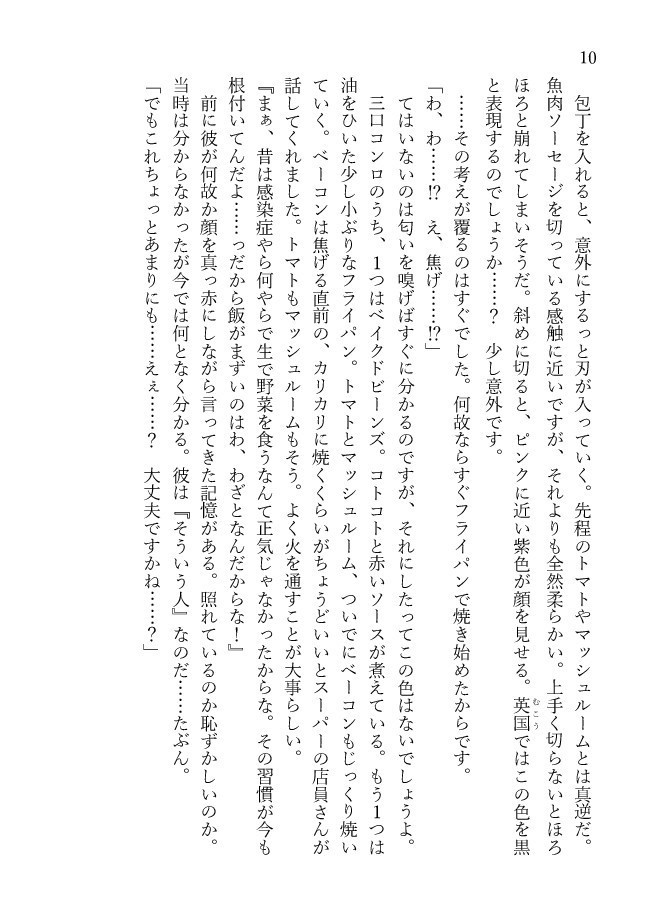 10
　包丁を入れると、意外にするっと刃が入っていく。先程のトマトやマッシュルームとは真逆だ。
魚肉ソーセージを切っている感触に近いですが、それよりも全然柔らかい。上手く切らないとほろ
ほろと崩れてしまいそうだ。斜めに切ると、ピンクに近い紫色が顔を見せる。英国ではこの色を黒
むこう
と表現するのでしょうか……？　少し意外です。
　……その考えが覆るのはすぐでした。何故ならすぐフライパンで焼き始めたからです。
「わ、わ……⁉　え、焦げ……⁉」
　てはいないのは匂いを嗅げばすぐに分かるのですが、それにしたってこの色はないでしょうよ。
　三口コンロのうち、１つはベイクドビーンズ。コトコトと赤いソースが煮えている。もう１つは
油をひいた少し小ぶりなフライパン。トマトとマッシュルーム、ついでにベーコンもじっくり焼い
ていく。ベーコンは焦げる直前の、カリカリに焼くくらいがちょうどいいとスーパーの店員さんが
話してくれました。トマトもマッシュルームもそう。よく火を通すことが大事らしい。
『まぁ、昔は感染症やら何やらで生で野菜を食うなんて正気じゃなかったからな。その習慣が今も
根付いてんだよ……っだから飯がまずいのはわ、わざとなんだからな！』
　前に彼が何故か顔を真っ赤にしながら言ってきた記憶がある。照れているのか恥ずかしいのか。
当時は分からなかったが今では何となく分かる。彼は『そういう人』なのだ……たぶん。
「でもこれちょっとあまりにも……えぇ……？　大丈夫ですかね……？」